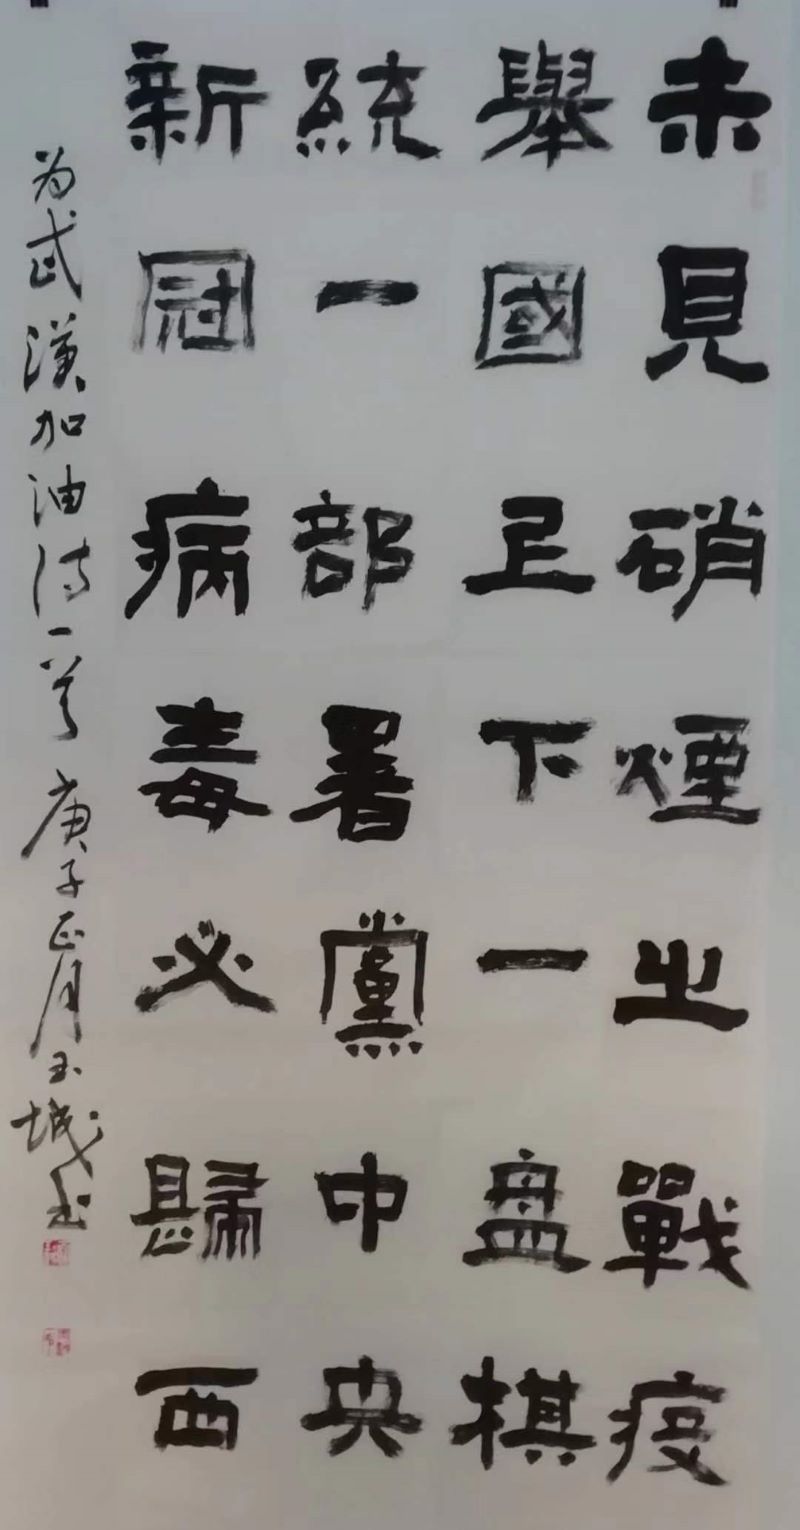 未見硝煙之戰疫
舉國上下一盘棋
統一部署黨中央
新冠病毒必歸西
为武漢加油诗一首 庚子正月玉城书